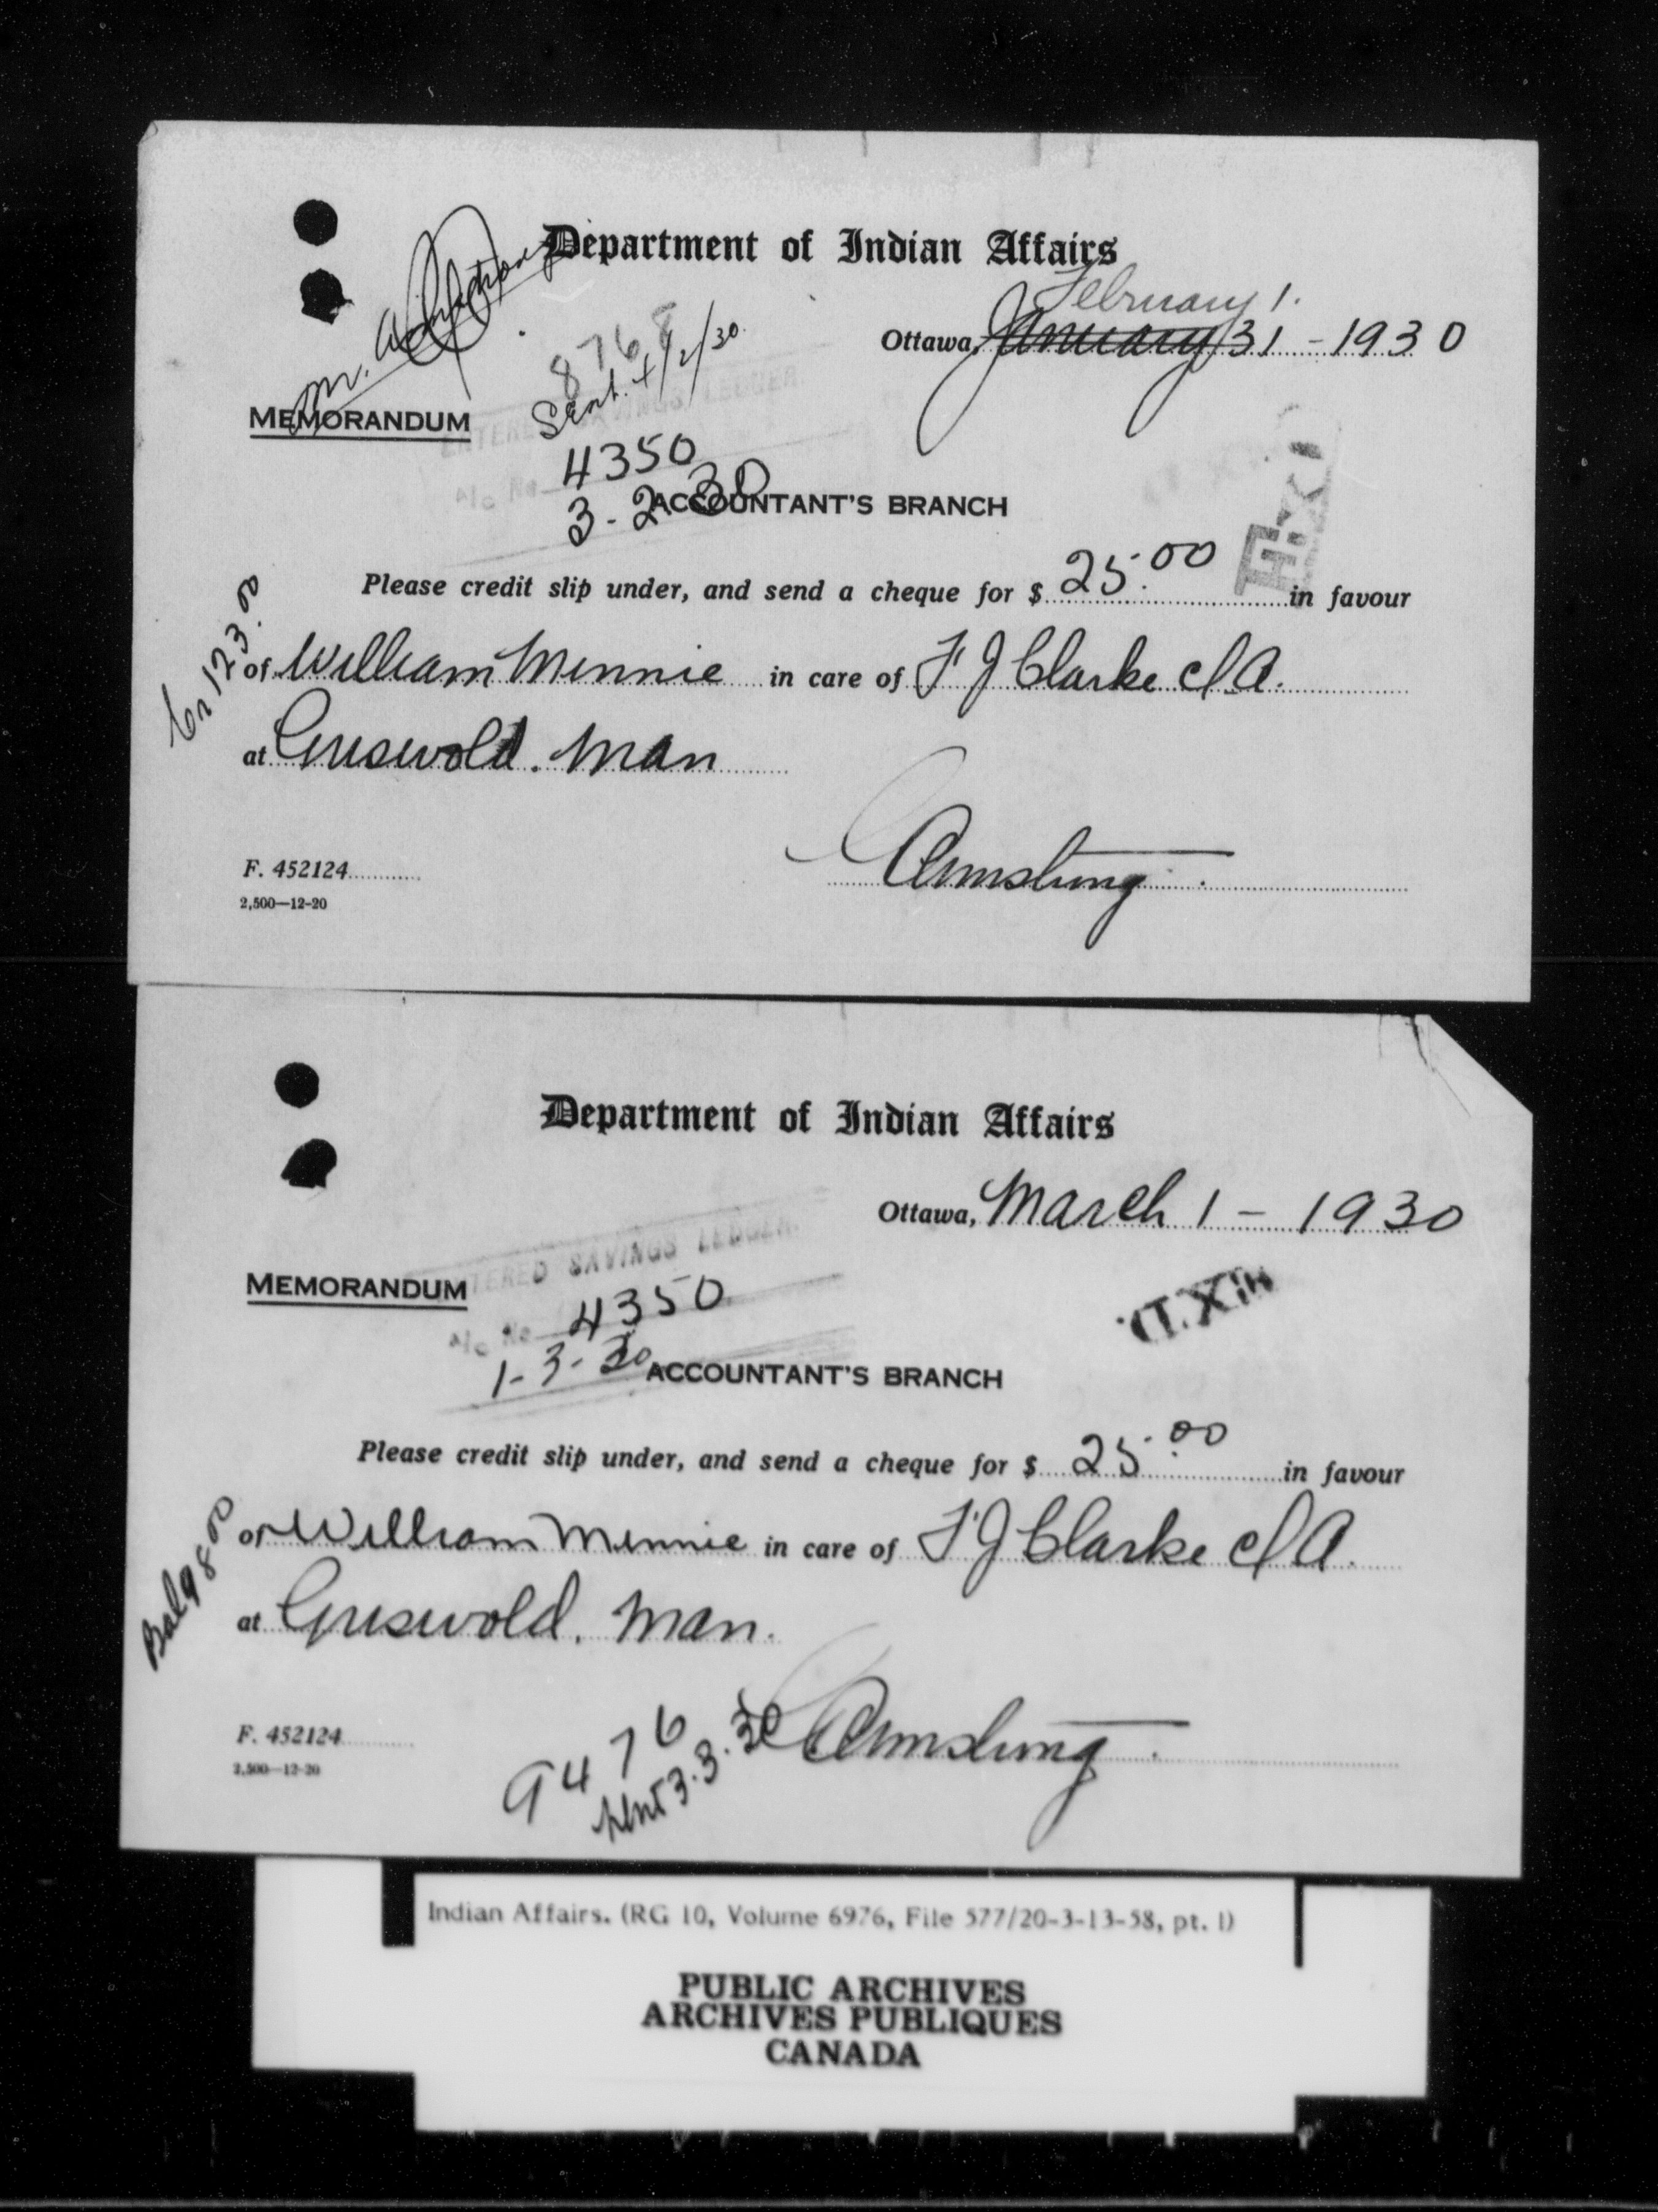 Department of Indian Affairs
February 1.
Ottawa, January 31 - 1930
8768
Sent. 4/2/30.
MEMORANDUM
ENTERED SAVINGS LEDGER.
A/c No 4350
3-2-30
ACCOUNTANT'S BRANCH
Please credit slip under, and send a cheque for $ 25.00 in favour
Cr 123.00
of William Minnie in care of F J Clarke I A.
at Griswold. Man
Armstrong
F. 452124
2,500—12-20
Department of Indian Affairs
Ottawa, March 1 - 1930
ENTERED SAVINGS LEDGER.
MEMORANDUM
A/c No 4350
1-3-30
ACCOUNTANT'S BRANCH
Please credit slip under, and send a cheque for $ 25.00 in favour
Bal 98 00
of William Minnie in care of F J Clarke I A.
at Griswold. Man.
F. 452124
2,500—12-20
9476
sent 3.3.30
Armstrong
Indian Affairs. (RG 10, Volume 6976, File 577/20-3-13-58, pt. 1)
PUBLIC ARCHIVES
ARCHIVES PUBLIQUES
CANADA